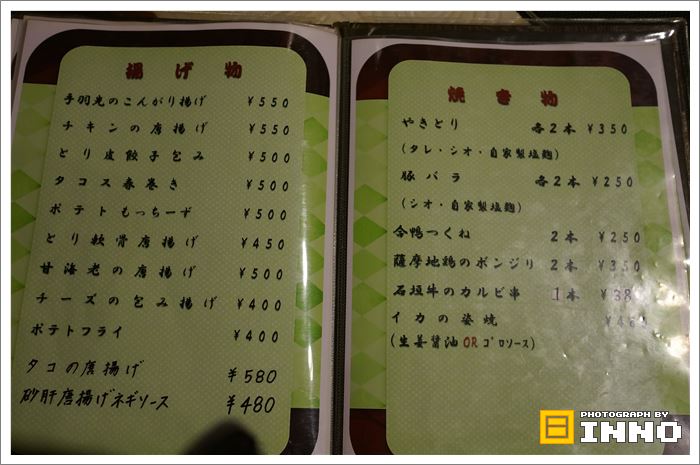 揚げ物
手羽先のこんがり揚げ ¥550
チキンの唐揚げ ¥550
とり皮餃子包み ¥500
タコス春巻き ¥500
ポテトもっちーず ¥500
とり軟骨唐揚げ ¥450
甘海老の唐揚げ ¥500
チーズの包み揚げ ¥400
ポテトフライ ¥400
タコの唐揚げ ¥580
砂肝唐揚げネギソース ¥480
焼き物
やきとり 各2本 ¥350
(タレ・シオ・自家製塩麹)
豚バラ 各2本 ¥250
(シオ・自家製塩麹)
合鴨つくね 2本 ¥250
薩摩地鶏のボンジリ 2本 ¥350
石垣牛のカルビ串 1本
イカの姿焼
(生姜醤油 OR ゴロソース)
PHOTOGRAPH BY
INNO